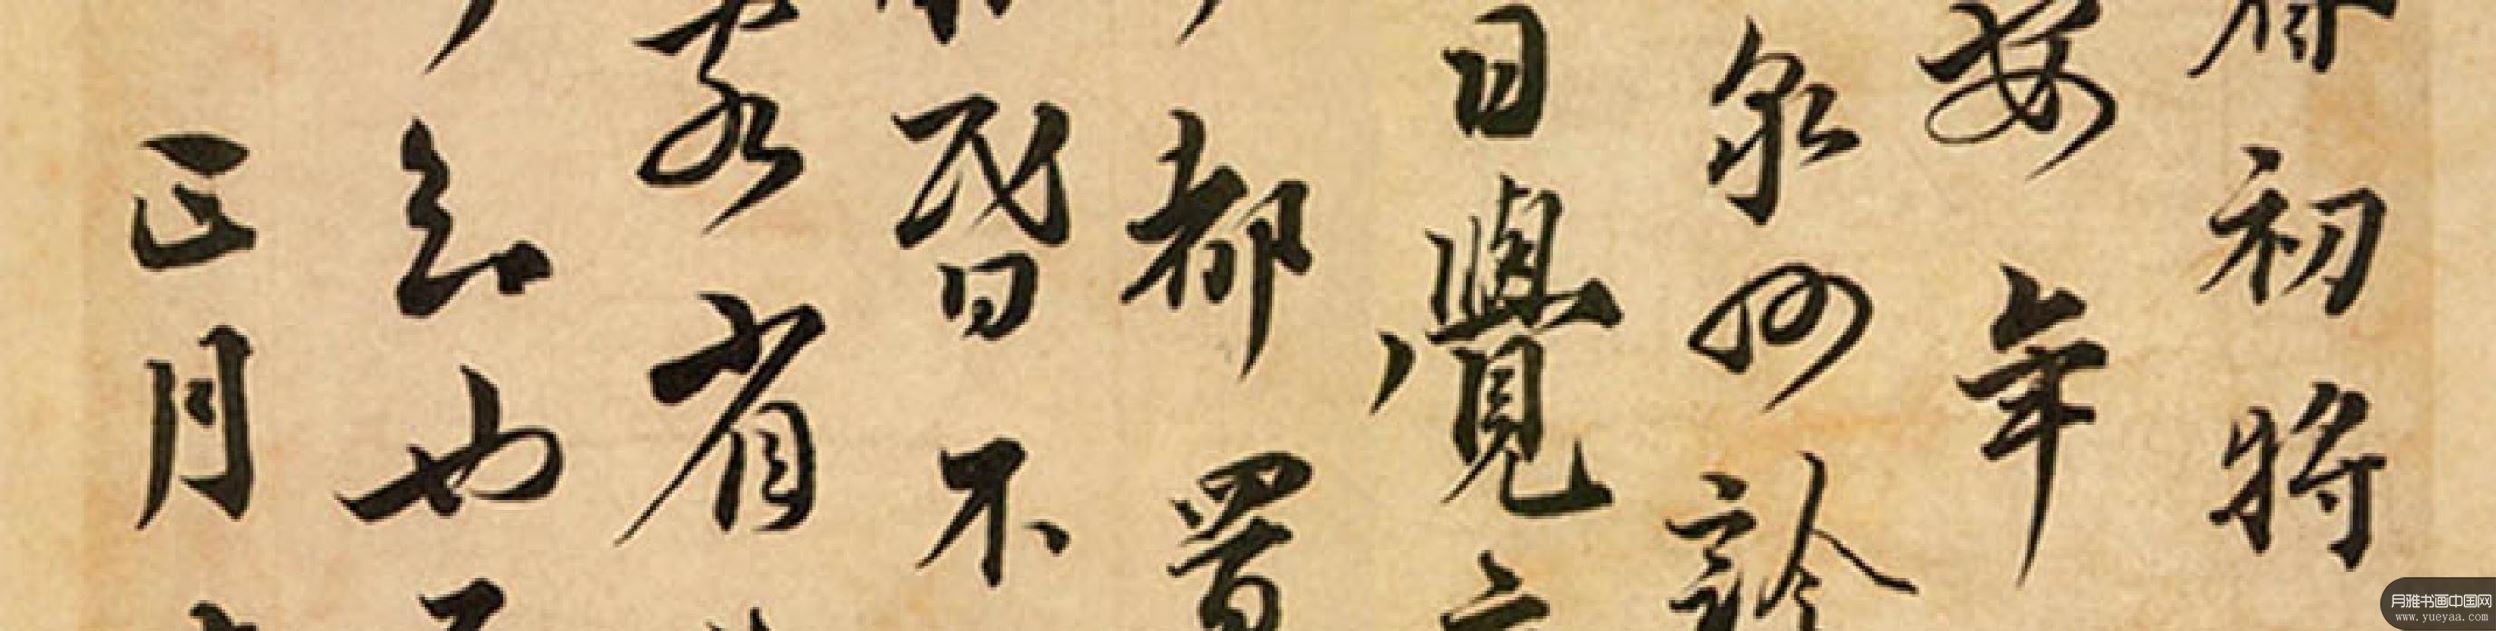 初将
安年
泉州診
日覺
都署
昏不
客省
知也
正月
月雅书画中国网
www.yueyaa.com